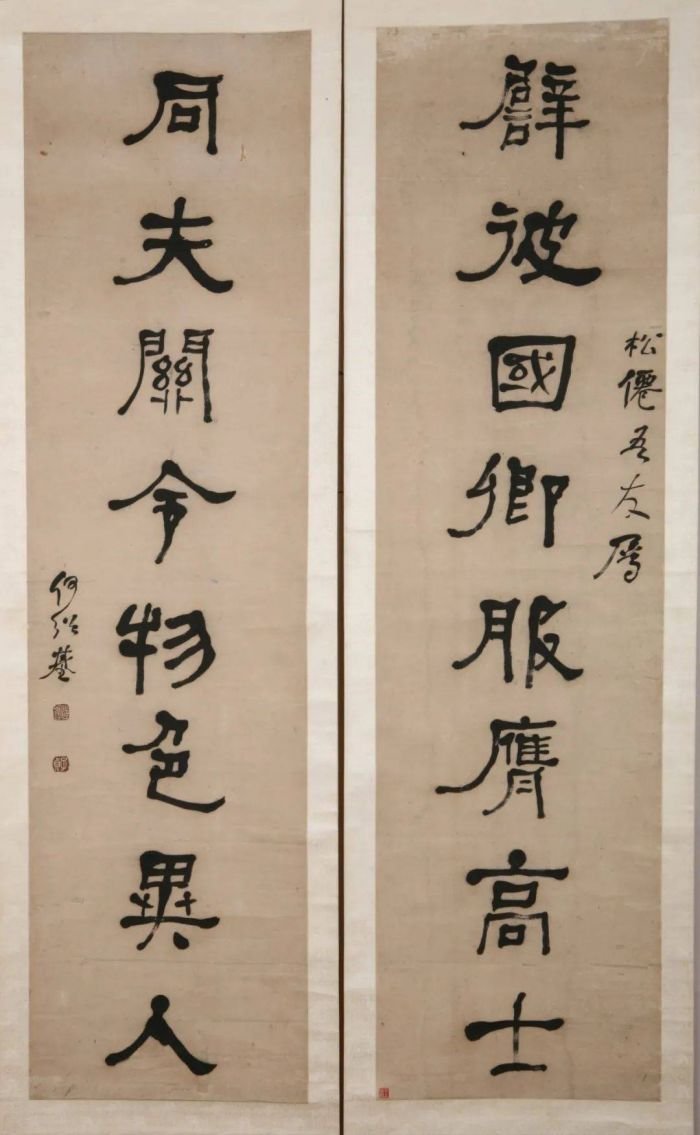 松僊吾友屬
譬彼國卿服膺高士
同夫關令物色異人
何紹基